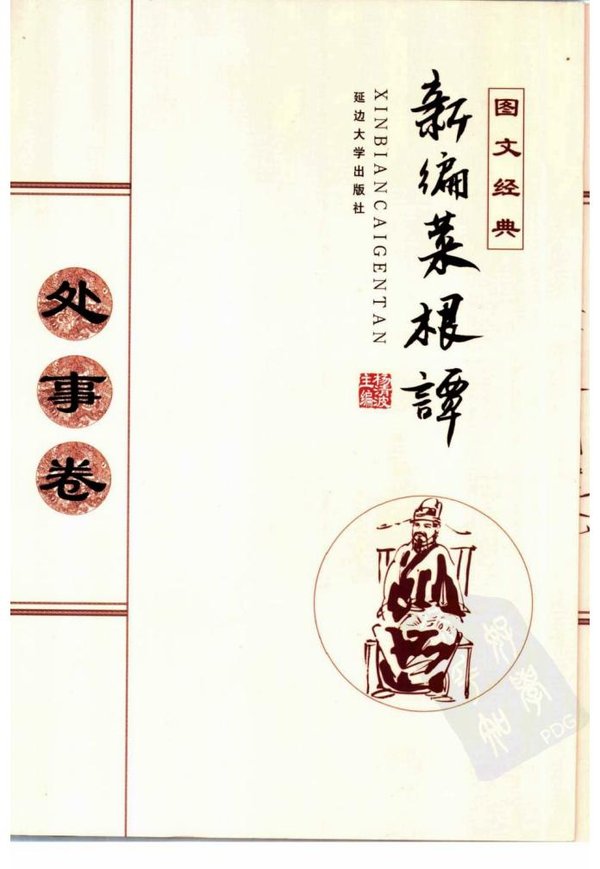 图文经典
新编菜根譚
XINBIANCAIGENTAN
延边大学出版社
杨清波
主编
处事卷
PDG